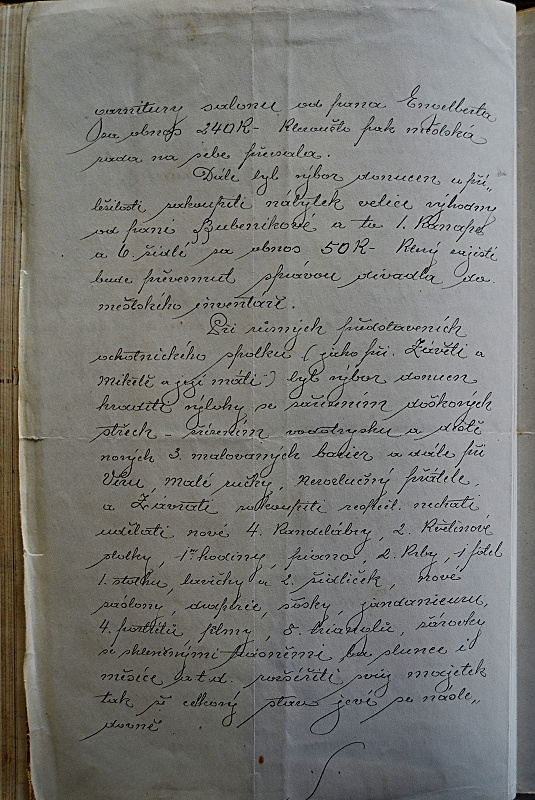 garnitury salonu od pana Engelberta
za obnos 240K- Kteroužto pak městská
rada na sebe převzala.
Dále byl výbor donucen u pří„
ležitosti zakoupiti nábytek velice výhodny
od paní Bubeníkové a to 1. Kanape
a 6. židlí za obnos 50K- Který zajisté
bude převzmut správou divadla do
městského inventáře.
Při různých představeních
ochotnického spolku (jako při. Závěti a
Mikeš a jeji máti) byl výbor donucen
hraditi výlohy se zařízením doškových
střech - zřízením vodotrysku a
nových 3. malovaných barier a dále při
malé ručky, přítele,
a zakoupiti nechati
udělati nové 4. Kandelábry, 2. Květinové
stolky, 1 hodiny, piano, 2. Krby, 1 fotel
1. stolku, lavičky a 2. židliček, nové
záclony, draperie, sošky,
4. portálů, filmy, 5. triangle, žárovky
se skleněnými básněmi pro slunce i
měsíce a.t.d. rozšířiti svůj majetek
tak že celkový stav jeví se násle„
dovně